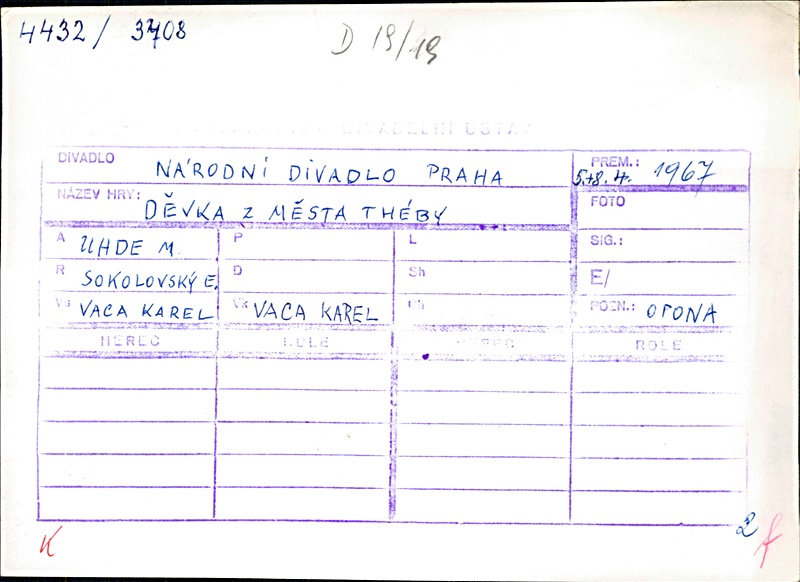 4432/ 3708
D 19/19
DIVADELNÍ ÚSTAV
DIVADLO NÁRODNÍ DIVADLO PRAHA PREM.: 5.+8. 4. 1967
NÁZEV HRY: DĚVKA Z MĚSTA THÉBY FOTO
A UHDE M. P L SIG.:
R SOKOLOVSKÝ E. D Sh E/
Vs VACA KAREL Vk VACA KAREL Ch POZN.: OPONA
HEREC ROLE HEREC ROLE
K 2 f